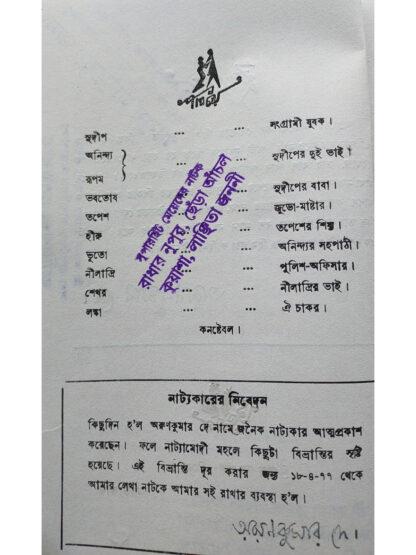 পাত্রে
সুদীপ ... ... সংগ্রামী যুবক।
অনিন্দ্য
রূপম } ... ... সুদীপের দুই ভাই।
ভবতোষ ... ... সুদীপের বাবা।
তপেশ ... ... জুডো-মাষ্টার।
হীরু ... ... তপেশের শিষ্য।
ভুতো ... ... অনিন্দ্যর সহপাঠী।
নীলাদ্রি ... ... পুলিশ-অফিসার।
শেখর ... ... নীলাদ্রির ভাই।
লঙ্কা ... ... ঐ চাকর।
কনষ্টেবল।
সুপারহিট মেয়েদের নাটক
রাধার নুপুর, ছেঁড়া আঁচল
কুয়াশা, লাঞ্ছিতা জননী
নাট্যকারের নিবেদন
কিছুদিন হ'ল অরুণকুমার দে নামে জনৈক নাট্যকার আত্মপ্রকাশ
করেছেন। ফলে নাট্যামোদী মহলে কিছুটা বিভ্রান্তির সৃষ্টি
হয়েছে। এই বিভ্রান্তি দূর করার জন্য ১৮-৪-৭৭ থেকে
আমার লেখা নাটকে আমার সই রাখার ব্যবস্থা হ'ল।
অরুণকুমার দে।